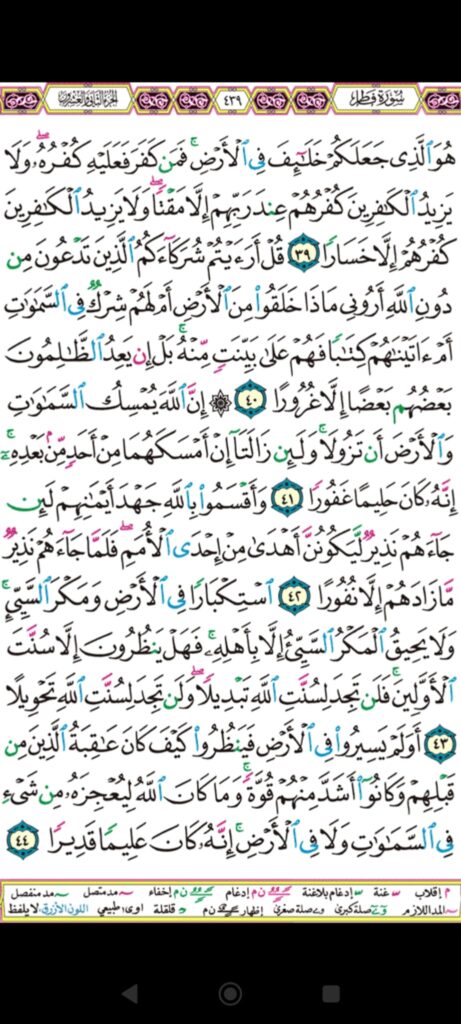 سُورَةُ فَاطِرٍ ٤٣٩ الجزء الثاني والعشرون
هُوَ ٱلَّذِى جَعَلَكُمْ خَلَـٰٓئِفَ فِى ٱلْأَرْضِ ۚ فَمَن كَفَرَ فَعَلَيْهِ كُفْرُهُۥ ۖ وَلَا
يَزِيدُ ٱلْكَـٰفِرِينَ كُفْرُهُمْ عِندَ رَبِّهِمْ إِلَّا مَقْتًا ۖ وَلَا يَزِيدُ ٱلْكَـٰفِرِينَ
كُفْرُهُمْ إِلَّا خَسَارًا ٣٩ قُلْ أَرَءَيْتُمْ شُرَكَآءَكُمُ ٱلَّذِينَ تَدْعُونَ مِن
دُونِ ٱللَّهِ أَرُونِى مَاذَا خَلَقُوا۟ مِنَ ٱلْأَرْضِ أَمْ لَهُمْ شِرْكٌ فِى ٱلسَّمَـٰوَٰتِ
أَمْ ءَاتَيْنَـٰهُمْ كِتَـٰبًا فَهُمْ عَلَىٰ بَيِّنَتٍ مِّنْهُ ۚ بَلْ إِن يَعِدُ ٱلظَّـٰلِمُونَ
بَعْضُهُم بَعْضًا إِلَّا غُرُورًا ٤٠ ۞ إِنَّ ٱللَّهَ يُمْسِكُ ٱلسَّمَـٰوَٰتِ
وَٱلْأَرْضَ أَن تَزُولَا ۚ وَلَئِن زَالَتَآ إِنْ أَمْسَكَهُمَا مِنْ أَحَدٍ مِّنۢ بَعْدِهِۦٓ ۚ
إِنَّهُۥ كَانَ حَلِيمًا غَفُورًا ٤١ وَأَقْسَمُوا۟ بِٱللَّهِ جَهْدَ أَيْمَـٰنِهِمْ لَئِن
جَآءَهُمْ نَذِيرٌ لَّيَكُونُنَّ أَهْدَىٰ مِنْ إِحْدَى ٱلْأُمَمِ ۖ فَلَمَّا جَآءَهُمْ نَذِيرٌ
مَّا زَادَهُمْ إِلَّا نُفُورًا ٤٢ ٱسْتِكْبَارًا فِى ٱلْأَرْضِ وَمَكْرَ ٱلسَّيِّئِ ۚ
وَلَا يَحِيقُ ٱلْمَكْرُ ٱلسَّيِّئُ إِلَّا بِأَهْلِهِۦ ۚ فَهَلْ يَنظُرُونَ إِلَّا سُنَّتَ
ٱلْأَوَّلِينَ ۚ فَلَن تَجِدَ لِسُنَّتِ ٱللَّهِ تَبْدِيلًا ۖ وَلَن تَجِدَ لِسُنَّتِ ٱللَّهِ تَحْوِيلًا
٤٣ أَوَلَمْ يَسِيرُوا۟ فِى ٱلْأَرْضِ فَيَنظُرُوا۟ كَيْفَ كَانَ عَـٰقِبَةُ ٱلَّذِينَ مِن
قَبْلِهِمْ وَكَانُوٓا۟ أَشَدَّ مِنْهُمْ قُوَّةً ۚ وَمَا كَانَ ٱللَّهُ لِيُعْجِزَهُۥ مِن شَىْءٍ
فِى ٱلسَّمَـٰوَٰتِ وَلَا فِى ٱلْأَرْضِ ۚ إِنَّهُۥ كَانَ عَلِيمًا قَدِيرًا ٤٤
م إقلاب غنة إدغام بلاغنة ن م إدغام ن م إخفاء مد متصل مد منفصل
المد اللازم صلة كبرى صلة صغرى إظهار ن م قلقلة اوى: طبيعي اللون الأزرق: لا يلفظ